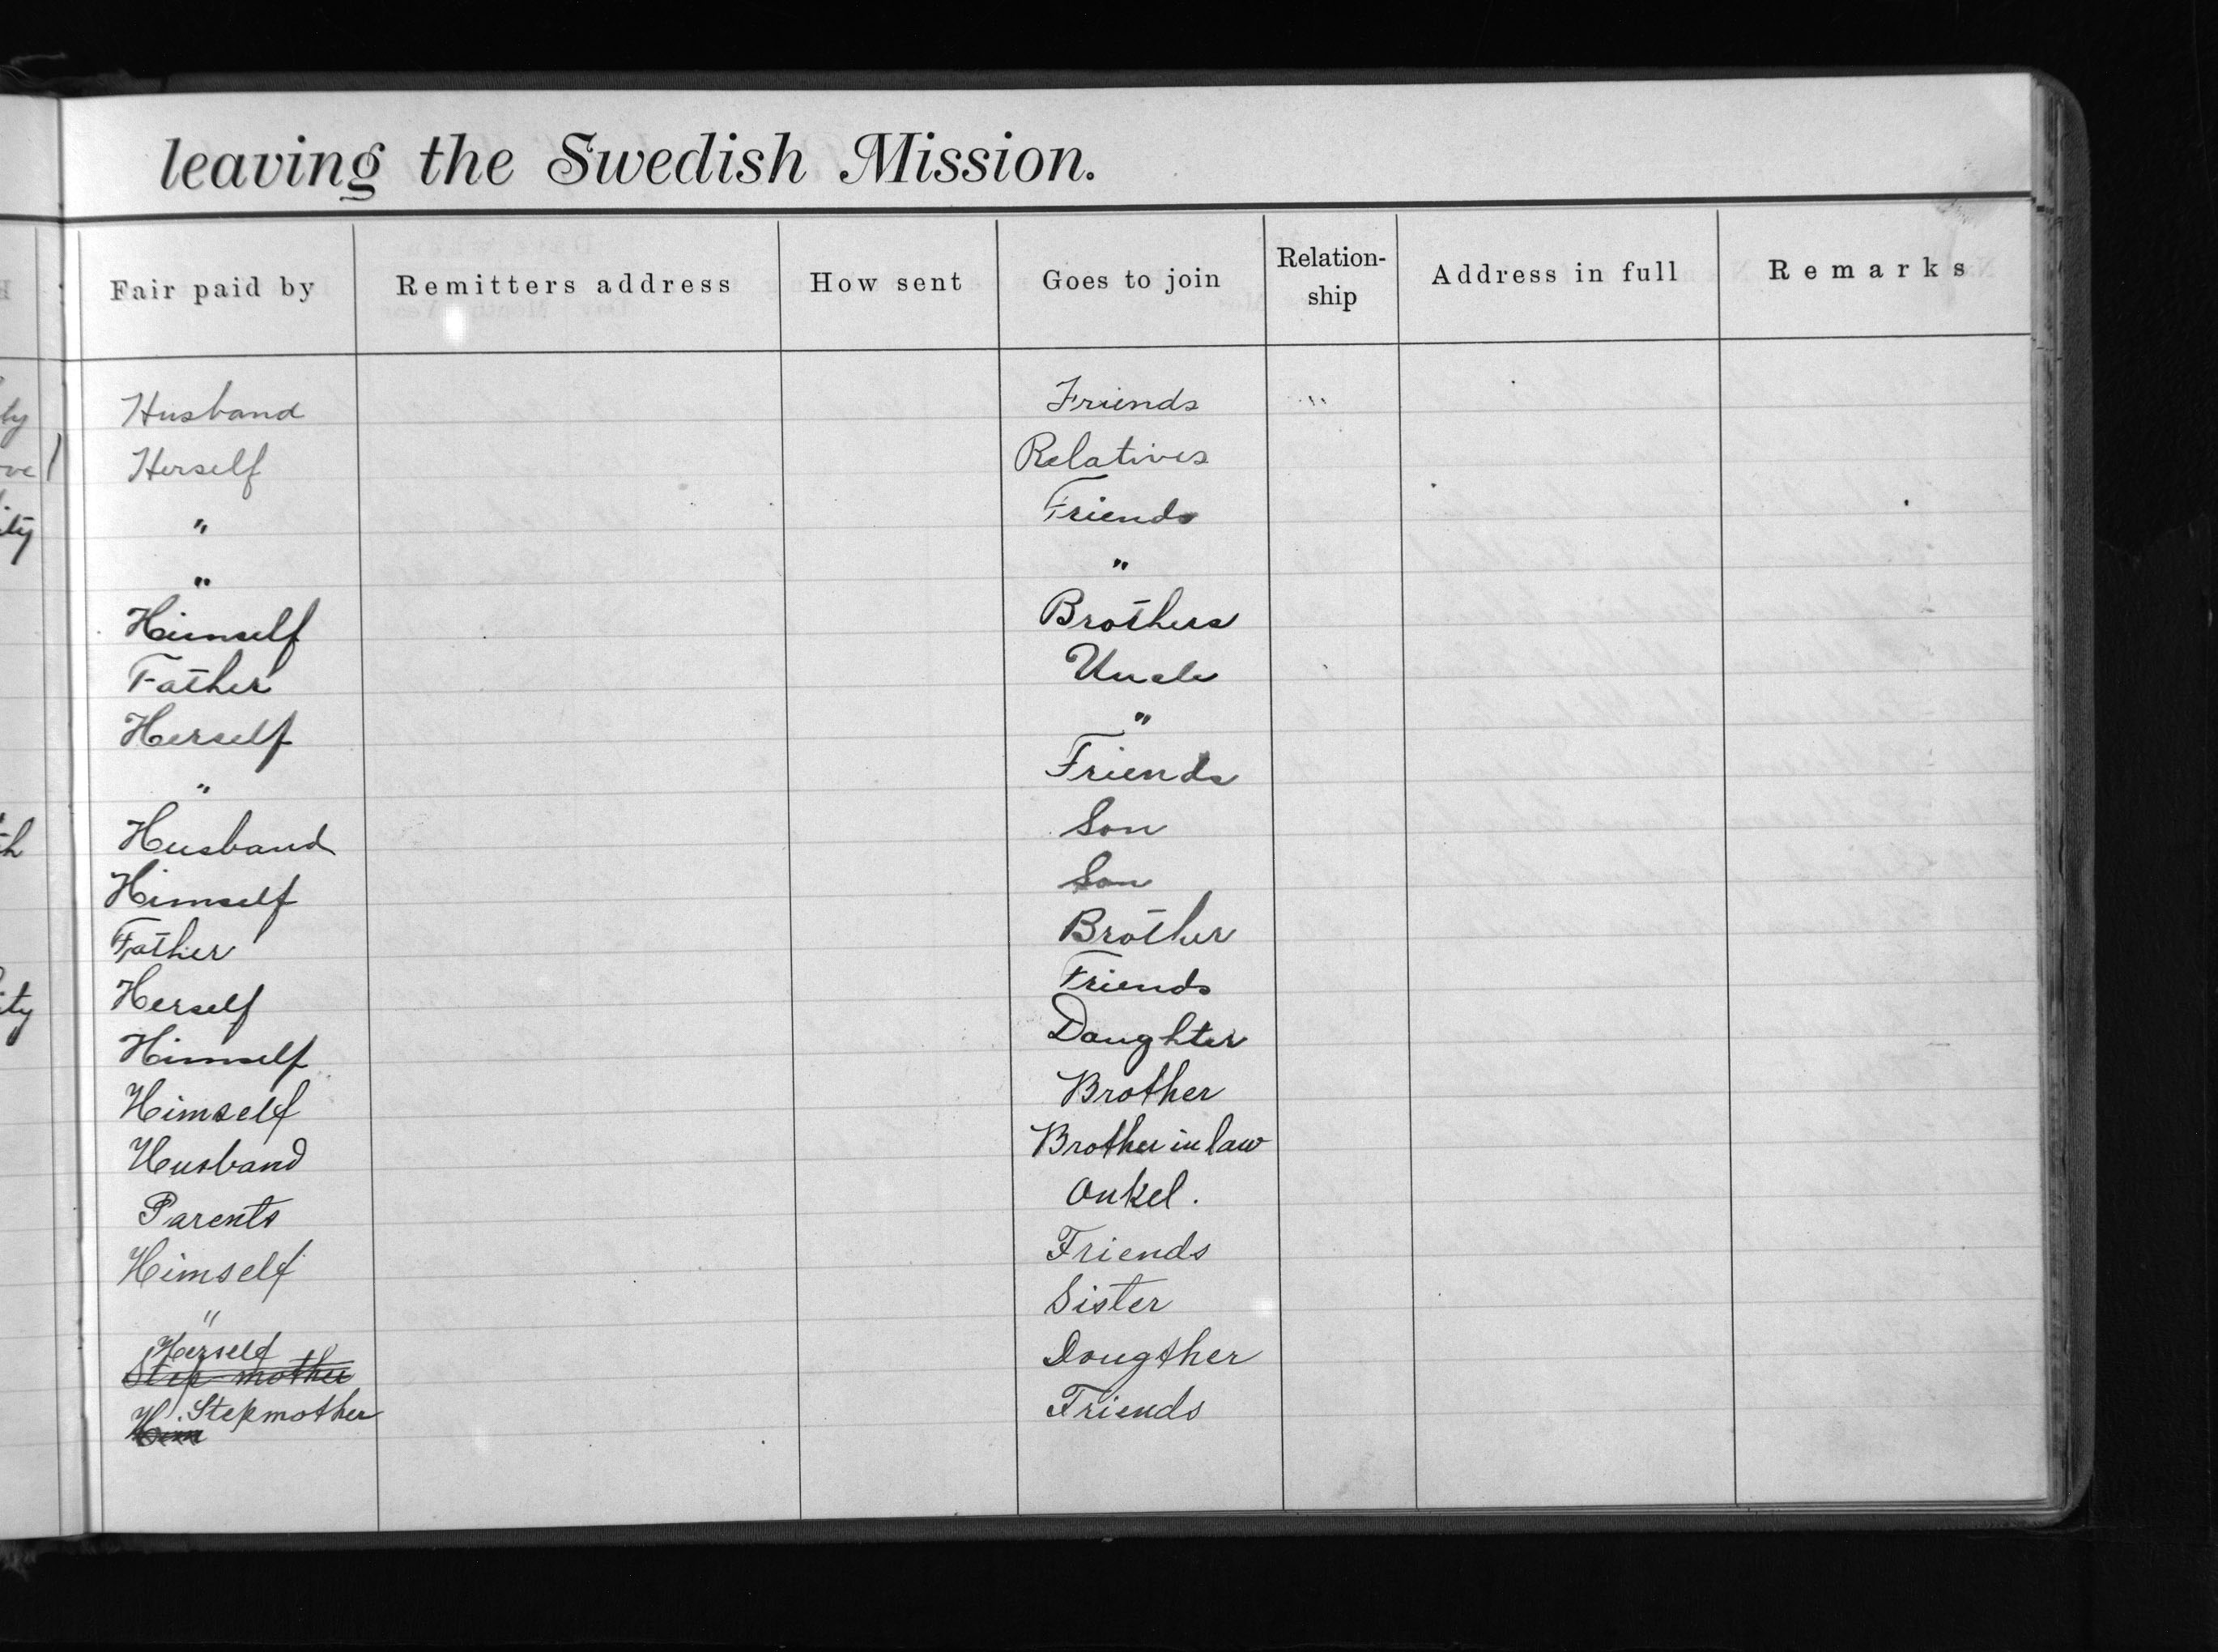 leaving the Swedish Mission.
Fair paid by Remitters address How sent Goes to join Relation-ship Address in full Remarks
Husband Friends "
Herself Relatives
" Friends
" "
Himself Brothers
Father Uncle
Herself "
" Friends
Husband Son
Himself Son
Father Brother
Herself Friends
Himself Daughter
Himself Brother
Husband Brother in law
Parents Onkel.
Himself Friends
" Sister
Herself
Step mother Dougther
Stepmother Friends